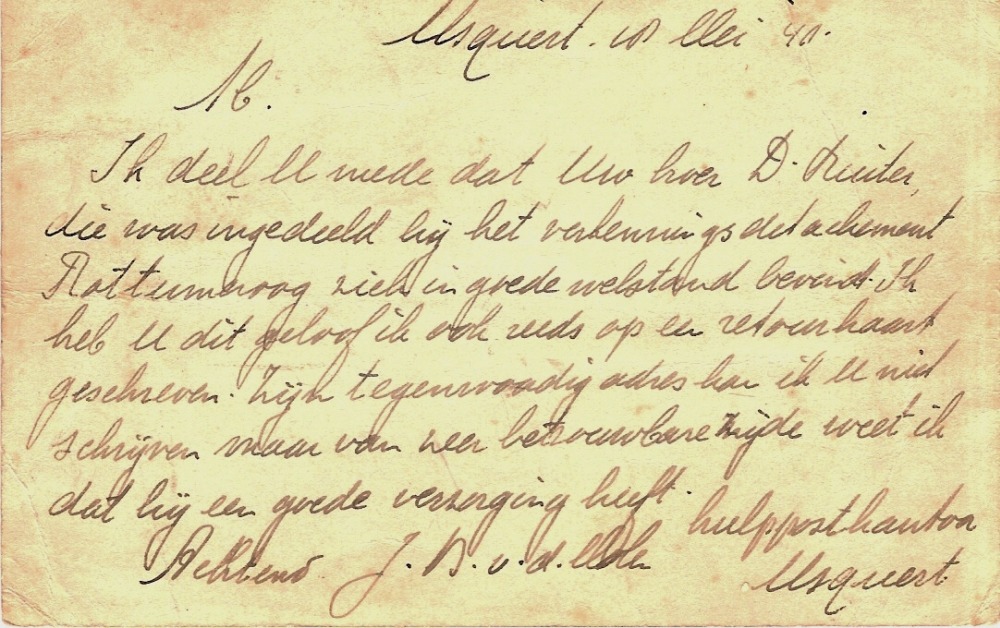 Usquert. 18 Mei '40.
M.
Ik deel U mede dat Uw broer D. Ruiter,
die was ingedeeld bij het verkenningsdetachement
Rottumeroog zich in goede welstand bevindt. Ik
heb U dit geloof ik ook reeds op en retourkaart
geschreven. Zijn tegenwoordig adres kan ik U niet
schrijven maar van zeer betrouwbare zijde weet ik
dat hij een goede verzorging heeft.
hulppostkantoor
Achtend J. B. v. d.
Usquert.